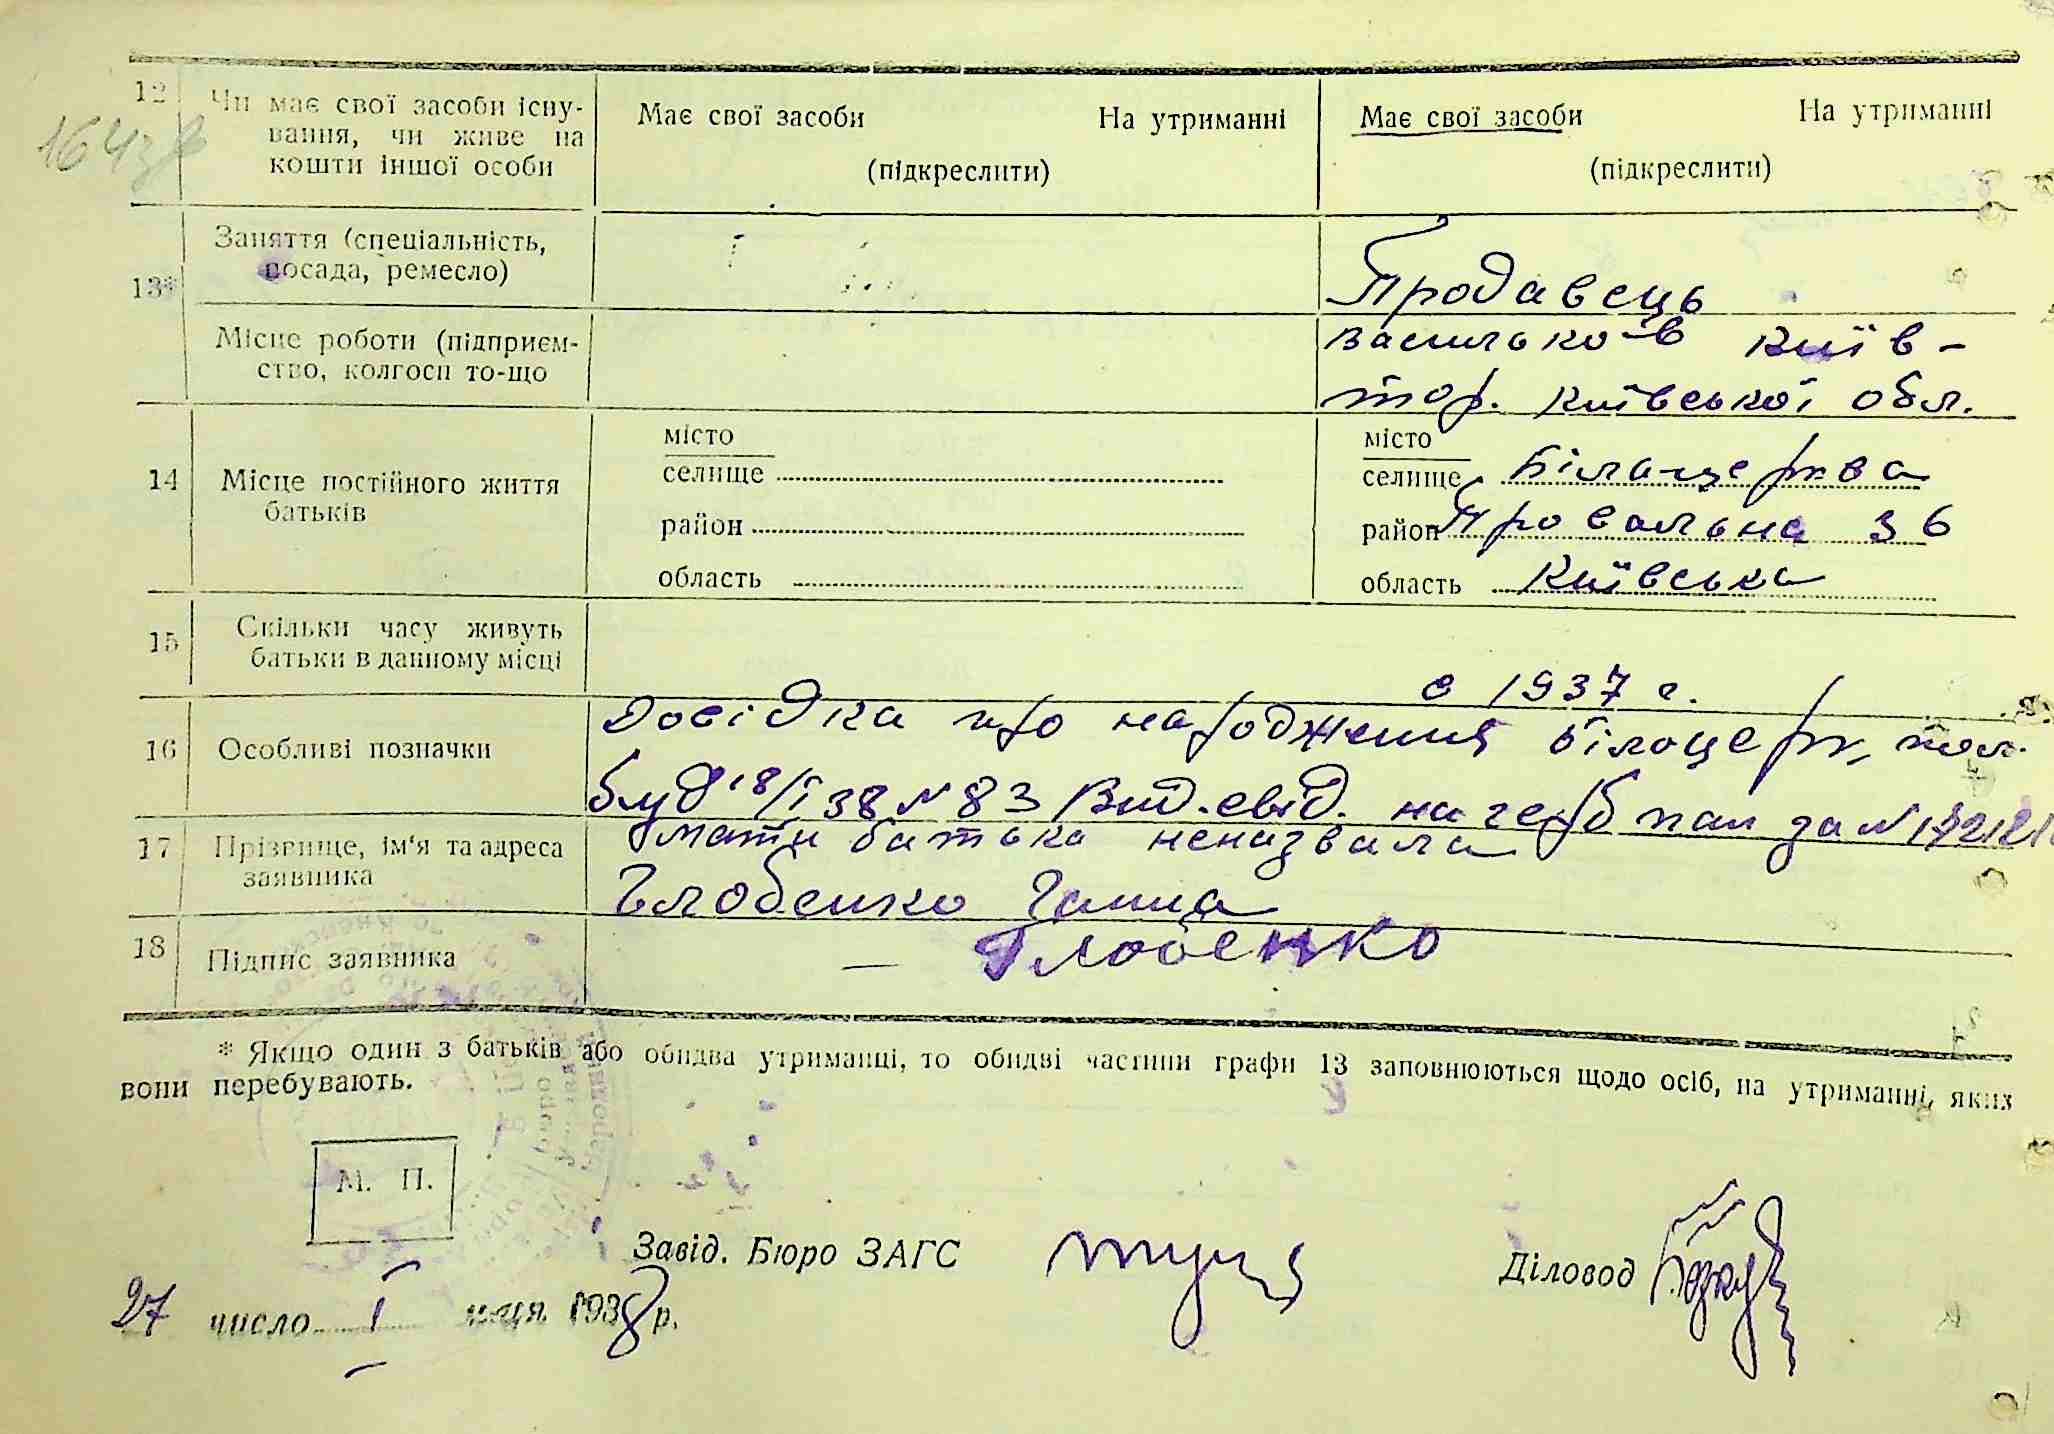 12
Чи має свої засоби існу-
вання, чи живе на
кошти іншої особи
Має свої засоби На утриманні
(підкреслити)
Має свої засоби На утриманні
(підкреслити)
13*
Заняття (спеціальність,
посада, ремесло)
Продавець
Місце роботи (підприєм-
ство, колгосп то-що
Васильков Київ-
тор. Київської обл.
14
Місце постійного життя
батьків
місто
селище
район
область
місто
селище Білацерква
район Провальна 36
область Київська
15
Скільки часу живуть
батьки в данному місці
с 1937 г.
16
Особливі позначки
Довідка про народження білоцерк, пол.
буд 18/I 38 N 83 Вид. свід. на герб пап за N
17
Прізвище, ім'я та адреса
заявника
мати батька неназвала
Глобенко Ганна
18
Підпис заявника
— Глобенко
* Якщо один з батьків або обидва утриманці, то обидві частини графи 13 заповнюються щодо осіб, на утриманні, яких
вони перебувають.
М. П.
Завід. Бюро ЗАГС
Діловод
27 число I м-ця 1938 р.